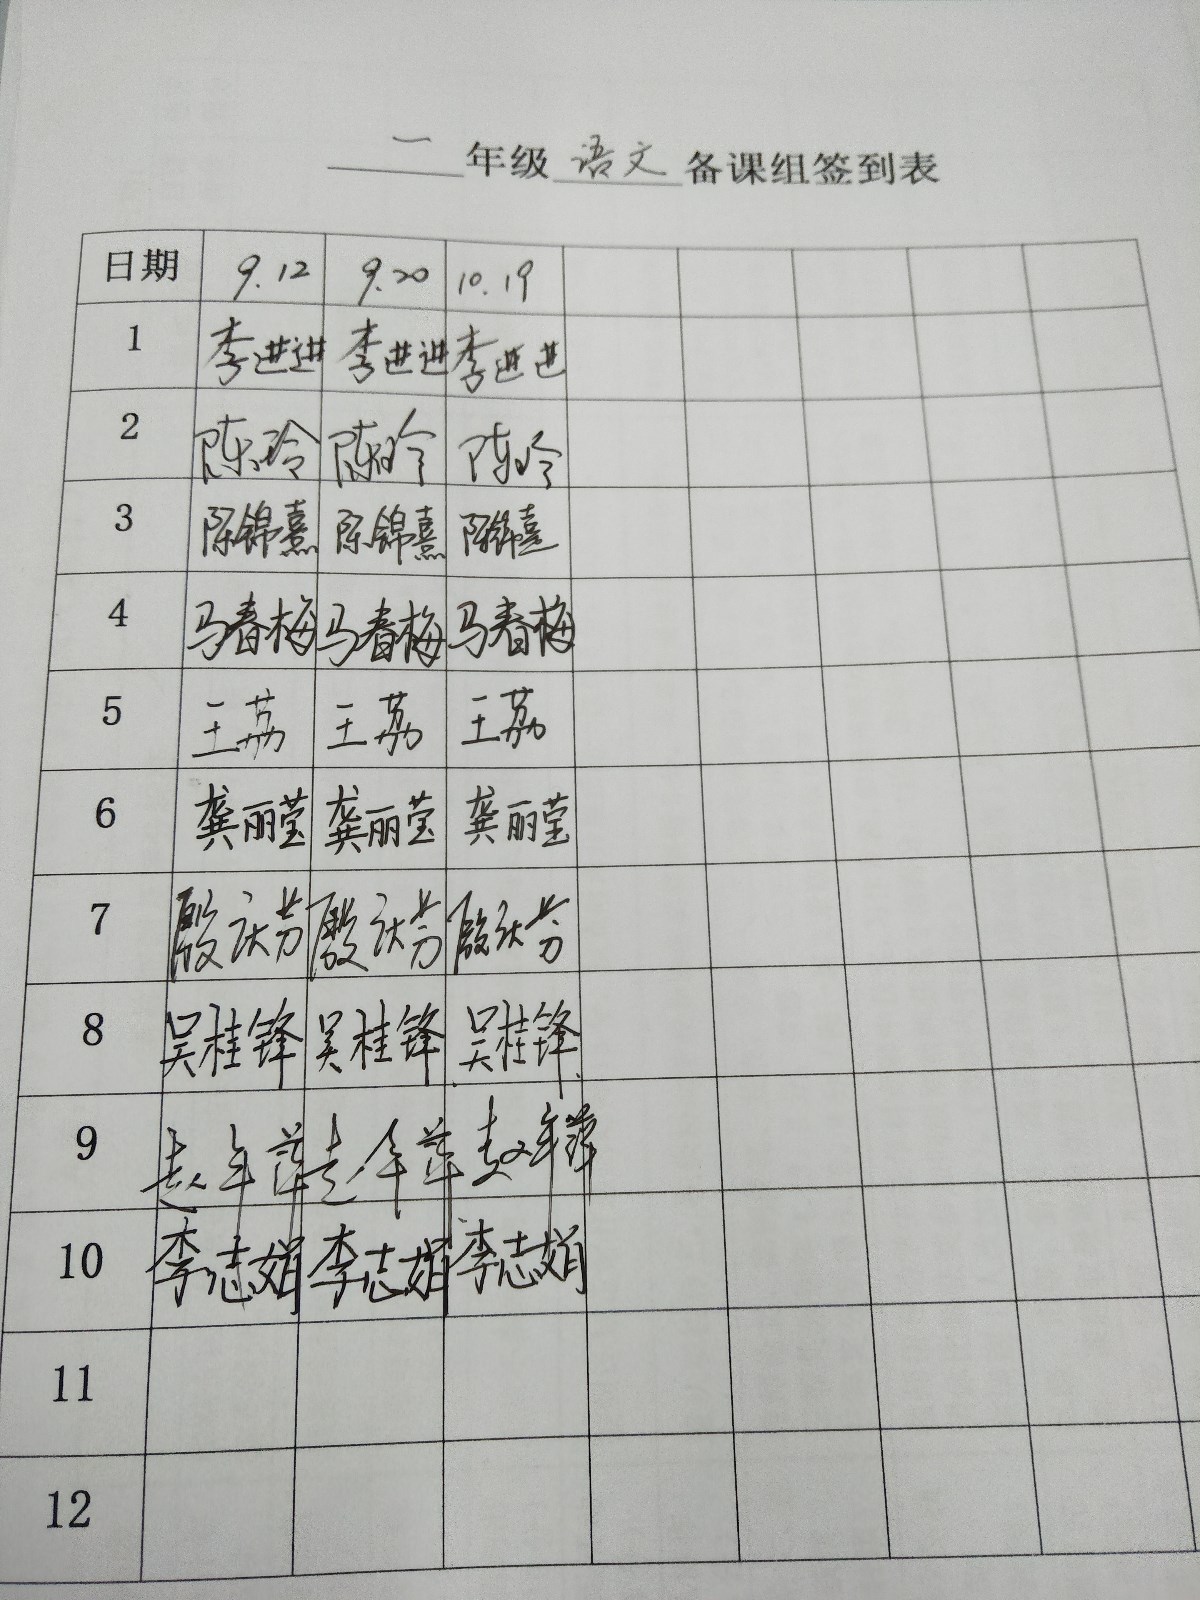 一年级语文备课组签到表
日期 9.12 9.20 10.19
1 李进进 李进进 李进进
2 陈玲 陈玲 陈玲
3 陈锦熹 陈锦熹 陈锦熹
4 马春梅 马春梅 马春梅
5 王荔 王荔 王荔
6 龚丽莹 龚丽莹 龚丽莹
7 殷 芳 殷 芳 殷 芳
8 吴桂锋 吴桂锋 吴桂锋
9 赵年萍 赵年萍 赵年萍
10 李志娟 李志娟 李志娟
11
12